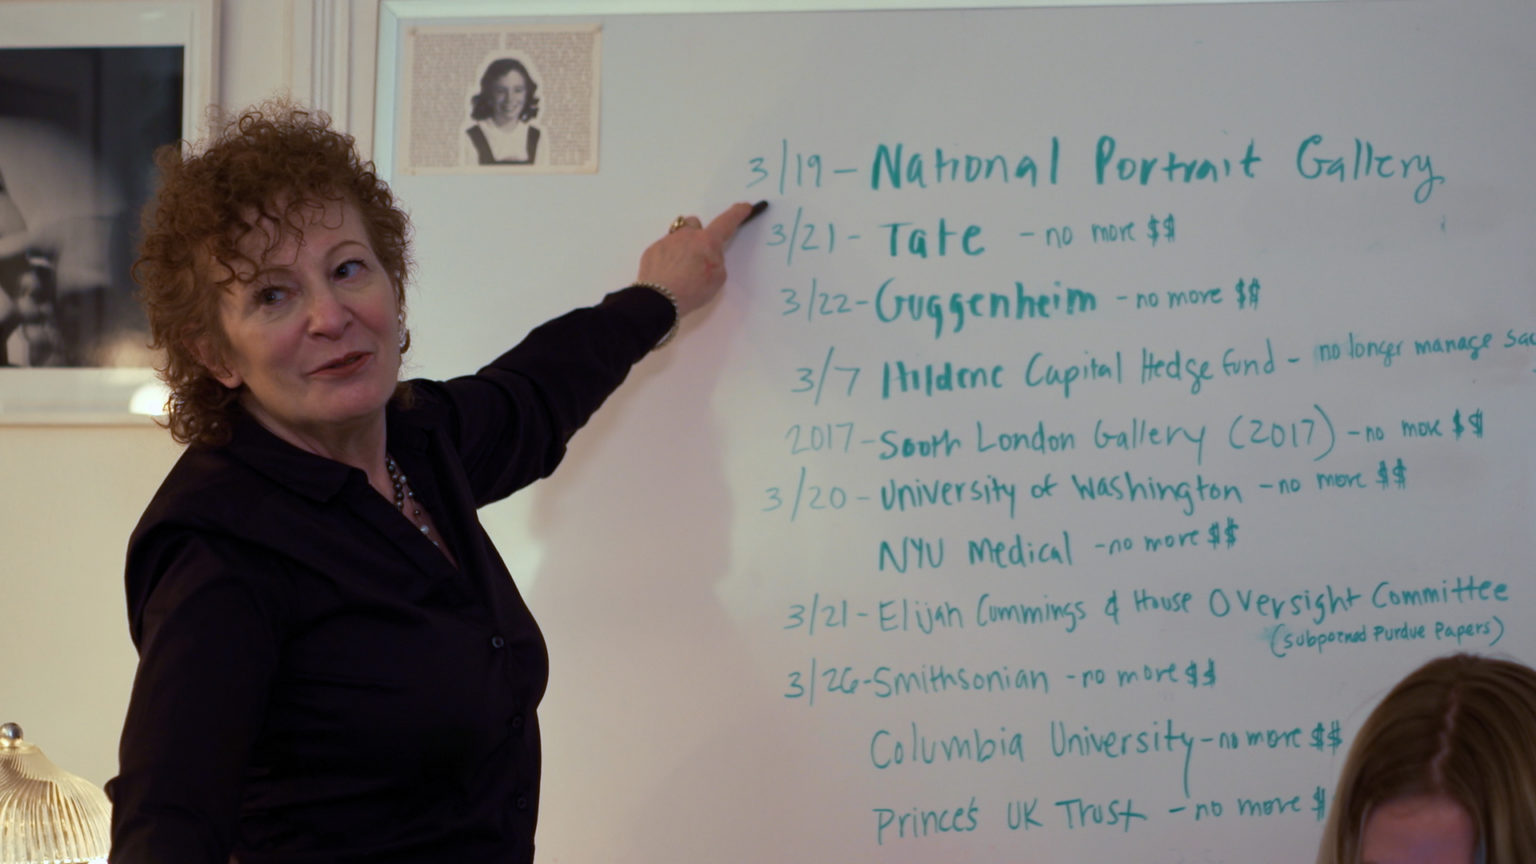 3/19 - National Portrait Gallery
3/21 - Tate - no more $$
3/22 - Guggenheim - no more $$
3/7 Hildene Capital Hedge Fund - no longer manage
2017 - South London Gallery (2017) - no more $$
3/20 - University of Washington - no more $$
NYU Medical - no more $$
3/21 - Elijah Cummings & House Oversight Committee
(subpoenaed Purdue Papers)
3/26 - Smithsonian - no more $$
Columbia University - no more $$
Prince's UK Trust - no more $